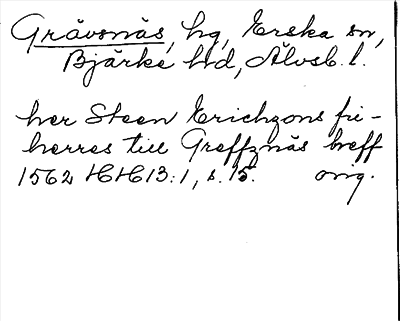 Grävsnäs, hg, Erska sn,
Bjärke hd, Älvsb. l.
her Steen Erichzons fri-
herres till Greffznäs breff
1562 HH13:1, s. 15. orig.